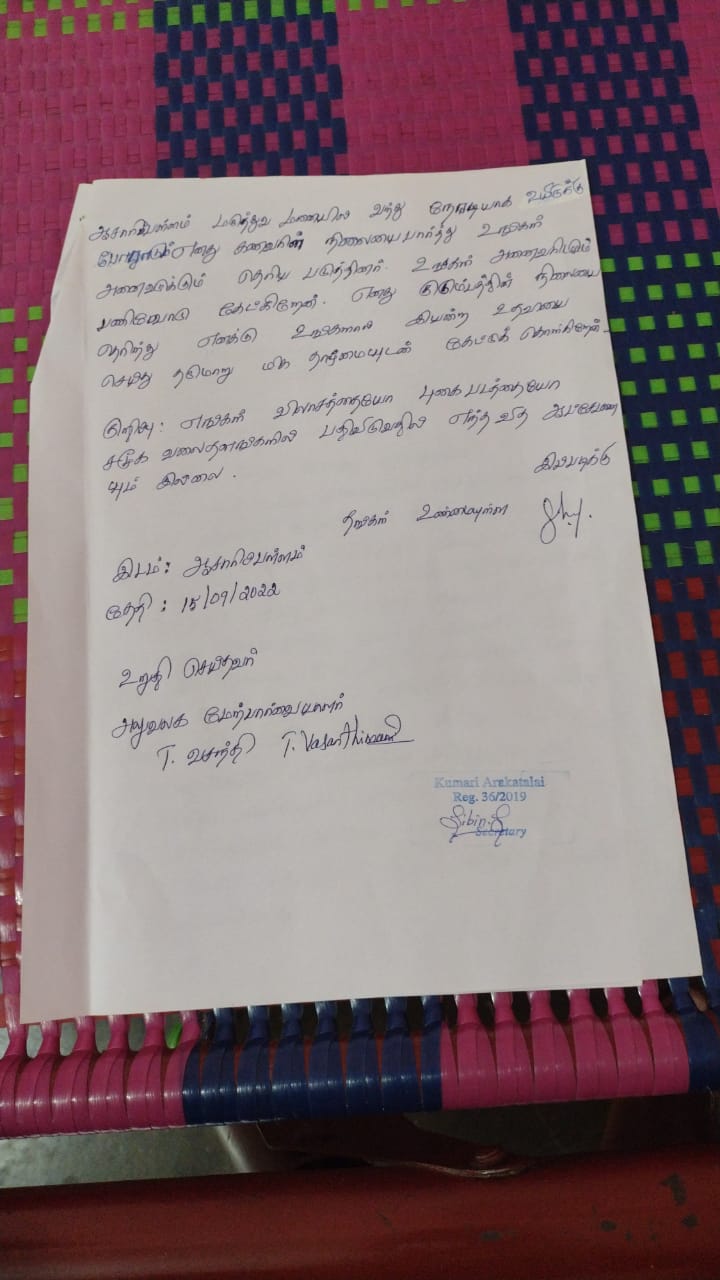 ஆசாரிபள்ளம் மருத்துவ மனையில் வந்து நேரடியாக உயிருக்கு
போராடும் எனது கணவரின் நிலையை பார்த்து உங்கள்
அனைவருக்கும் தெரிய படுத்தினர். உங்கள் அனைவரிடமும்
பணிவோடு கேட்கிறேன். எனது குடும்பத்தின் நிலையை
தெரிந்து எனக்கு உங்களால் இயன்ற உதவியை
செய்து தருமாறு மிக தாழ்மையுடன் கேட்டுக் கொள்கிறேன்.
குறிப்பு : எங்கள் விலாசத்தையோ புகை படத்தையோ
சமூக வலைதளங்களில் பதிவிடுவதில் எந்த வித ஆட்சேபனை
யும் இல்லை .
இப்படிக்கு
தங்கள் உண்மையுள்ள
இடம் : ஆசாரிபள்ளம்
தேதி : 15/09/2022
உறுதி செய்தவர்
அலுவலக மேற்பார்வையாளர்
T. வசந்தி T. Vasanthi
Kumari Arakatalai
Reg. 36/2019
Sibin.
Secretary